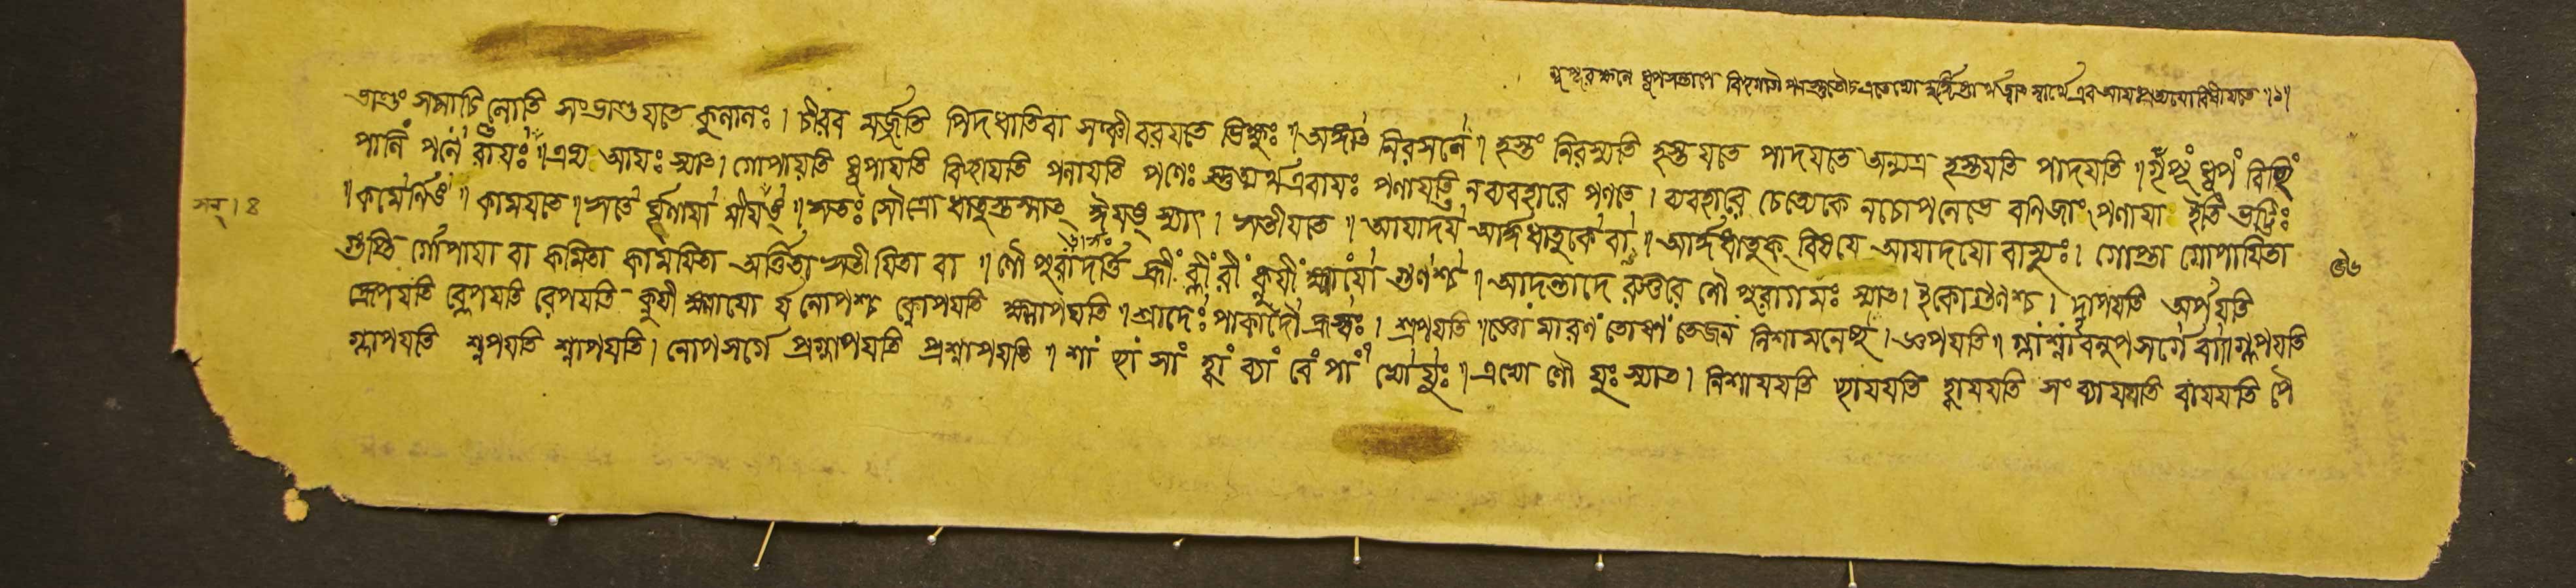 গুপূরক্ষনে ধূপসন্তাপে বিছগতৌ পনস্তুতৌচ এতেভ্যো স্বার্থেএব আয়প্রত্যযোবিধীয়তে ।১।
ভাণ্ডং সমাচিনোতি সংভাণ্ডযতে কুনানঃ । চীরব মর্জ্জতি পিদধাতিবা সঞ্চীবরযতে ভিক্ষুঃ ॥ অঙ্গাৎ নিরসনে ॥ হস্তং নিরস্যতি হস্তযতে পাদযতে অন্যত্র হস্তযতি পাদযতি ॥ গুঁপূং ধূপং বিছিং
পানিং পনে রাযঃ ॥ এভ্য আযঃ স্যাৎ । গোপাযতি ধূপাযতি বিছাযতি পনাযতি পণেঃ স্তুত্যর্থএবাযঃ পণাযতি ন ব্যবহারে পণতে । ব্যবহারে চেত্যেকে নচোপলেভে বনিজাং পণাযা ইতি ভট্টিঃ
॥ কামের্নিঙ ॥ কামযতে ॥ ঋতে র্ঘৃণাযা মীযঙ্ ॥ ঋতঃ সৌত্রো ধাতুস্তস্মাৎ ঈযঙ্ স্যাৎ । ঋতীযতে ॥ আযাদয আর্দ্ধধাতুকে বা ॥ আর্দ্ধধাতুক বিষযে আযাদযো বাস্যুঃ । গোপ্তা গোপাযিতা
গুপ্তি র্গোপাযা বা কমিতা কামযিতা অর্ত্তিতা ঋতীযিতা বা ॥ ণৌ পুরাদর্ত্তি হ্রীং ব্লীং রীং ক্নুযীং ক্ষ্মাংযা গুণশ্চ ॥ আদন্তাদে রুত্তরে ণৌ পুরাগমঃ স্যাৎ । ইকোগুনশ্চ । দাপযতি অর্পযতি
হ্রেপযতি ব্লেপযতি রেপযতি ক্নুযী ক্ষ্মাযো র্যলোপশ্চ ক্নোপযতি ক্ষ্মাপযতি ॥ শ্রাদেঃ পাকাদৌ হ্রস্বঃ । শ্রপযতি ॥ জ্ঞো মারণ তোষণ তেজন নিশামনেষু । জ্ঞপযতি ॥ গ্লাংস্নাংবনুপসর্গে বা ॥ গ্লপযতি
গ্লাপযতি স্নপযতি স্নাপযতি । নোপসর্গে প্রগ্লাপযতি প্রস্নাপযতি ॥ শাং ছাং সাং হ্বাং ব্যাং বেং পাং ভ্যো যুঃ ॥ এভ্যো ণৌ যুঃ স্যাৎ । নিশাযযতি ছাযযতি হ্বাযযতি সংব্যাযযতি বাযযতি পৈ